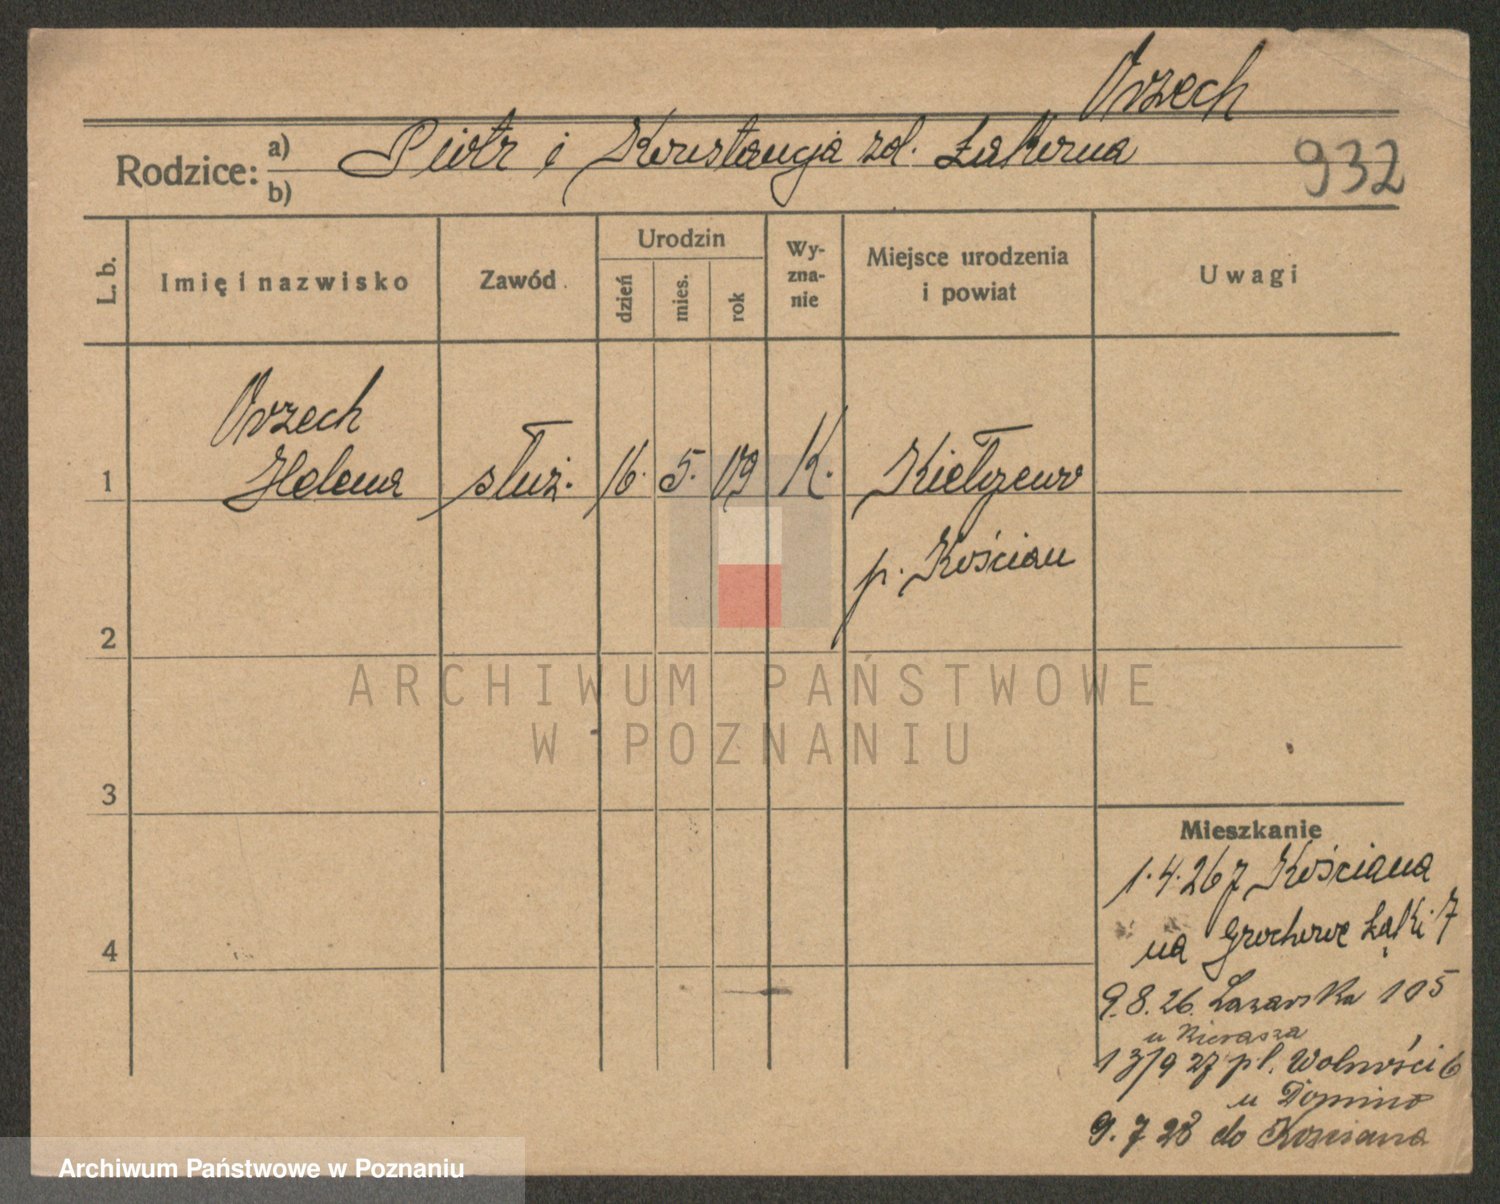 Orzech
Rodzice: a) Piotr i Konstancja zd. Łakoma
b)
932
L. b.
Imię i nazwisko
Zawód
Urodzin
dzień
mies.
rok
Wy-
zna-
nie
Miejsce urodzenia
i powiat
Uwagi
Orzech
1 Helena służ. 16. 5. 09 K. Kiełczewo
p. Kościan
2
3
4
ARCHIWUM PAŃSTWOWE
W POZNANIU
Mieszkanie
1.4.26 z Kościana
na Grochowe Łąki 7
9.8.26. Łazarska 105
u
13/9 27 pl. Wolności 6
u Domino
9.7 28 do Kościana
Archiwum Państwowe w Poznaniu